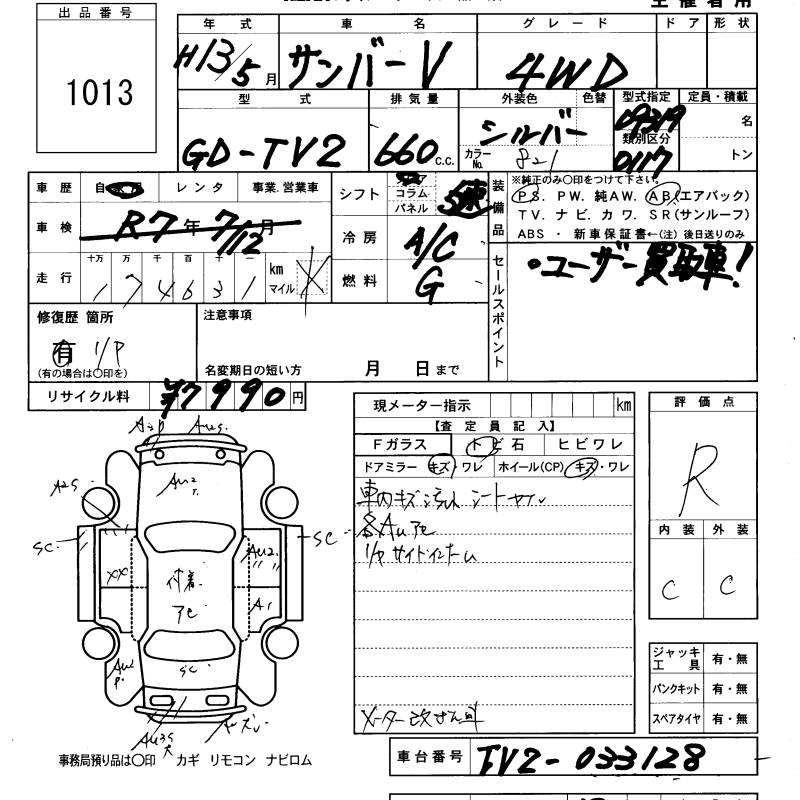 出品番号
1013
年式 車名 グレード ドア 形状
H13/5月 サンバーV 4WD
型式 排気量 外装色 色替 型式指定 定員・積載
GD-TV2 660c.c. シルバー 09319 名
カラーNo. 821 類別区分 0117 トン
車歴 レンタ 事業.営業車 シフト コラム パネル 5速
装備品 ※純正のみ〇印をつけて下さい。
PS. PW. 純AW. AB(エアバック)
TV. ナビ. カワ. SR(サンルーフ)
ABS ・ 新車保証書←(注) 後日送りのみ
車検 R7年7/12月 冷房 A/C
走行 十万 万 千 百 十 一 km マイル 燃料 G
174631
セールスポイント
・ユーザー買取車!
修復歴 箇所 注意事項
有 I/P
(有の場合は〇印を) 名変期日の短い方 月 日まで
リサイクル料 ¥7990円
現メーター指示 km
【査定員記入】
Fガラス トビ石 ヒビワレ
ドアミラー キズ・ワレ ホイール(CP) キズ・ワレ
車内キズ
各AUアC
I/P サイドインナー
メーター改ざん車
評価点
R
内装 外装
C C
ジャッキ工具 有・無
パンクキット 有・無
スペアタイヤ 有・無
AU2
A2S
SC SC
XX 付着 AU2
アC A1
AU2
P
SC
AU3S
事務局預り品は〇印 カギ リモコン ナビロム
車台番号 TV2-033128